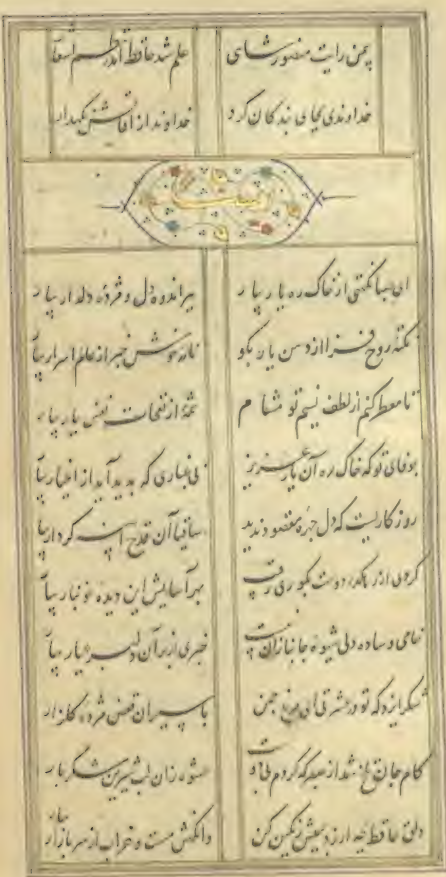 بیمن رایت منصور شاهی علم شد حافظ اندر نظم اشعار
خداوندی بجای بندگان کرد خداوندا ز آفاتش نگهدار
ای صبا نکهتی از خاک ره یار بیار ببر اندوه دل و مژده دلدار بیار
نکته روح فزا از دهن یار بگو نامه خوش خبر از عالم اسرار بیار
تا معطر کنم از لطف نسیم تو مشام شمه از نفحات نفس یار بیار
بوفای تو که خاک ره آن یار عزیز بی غباری که پدید آید از اغیار بیار
روزگاریست که دل چهره مقصود ندید ساقیا آن قدح آینه کردار بیار
کردی از رهگذر دوست بکوری رقیب بهر آسایش این دیده خونبار بیار
خامی و ساده دلی شیوه جانبازان نیست خبری از بر آن دلبر عیار بیار
شکر آنرا که تو در عشرتی ای مرغ چمن باسیران قفس مژده گلزار بیار
کام جان تلخ شد از صبر که کردم بی دوست عشوه زان لب شیرین شکربار بیار
دلق حافظ بچه ارزد بمیش رنگین کن وانگهش مست و خراب از سر بازار بیار